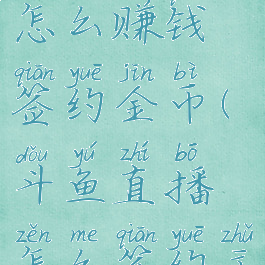 怎么赚钱
qiān yuē jīn bì
签约金币(
dǒu yú zhí bō
斗鱼直播
zěn me qiān yuē zhǔ
怎么签约主